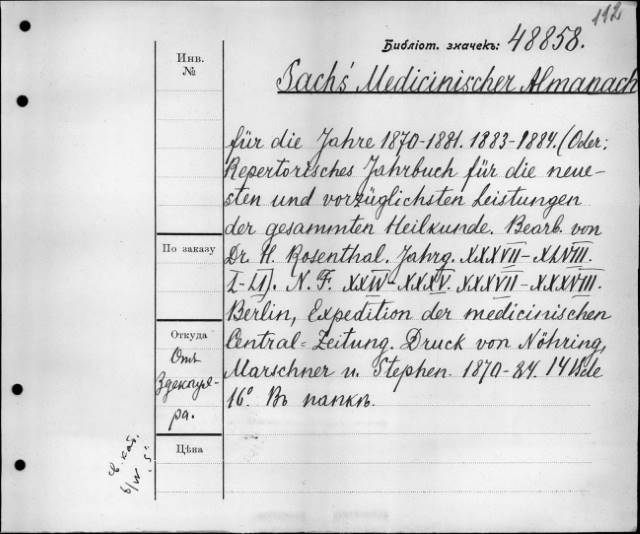 112
Библіот. значекъ: 48858.
Инв.
№
Sachs' Medicinischer Almanach
für die Jahre 1870-1881. 1883-1884. (Oder:
Repertorisches Jahrbuch für die neue-
sten und vorzüglichsten Leistungen
der gesammten Heilkunde. Bearb. von
По заказу
Dr H. Rosenthal. Jahrg. XXXVII-XLVIII.
L-LI). N. F. XXIV-XXXV. XXXVII-XXXVIII.
Berlin, Expedition der medicinischen
Откуда
Central-Zeitung. Druck von Nöhring,
Отъ
Marschner u. Stephen. 1870-84. 14 Bde
16° Въ папкѣ.
ра.
Цѣна